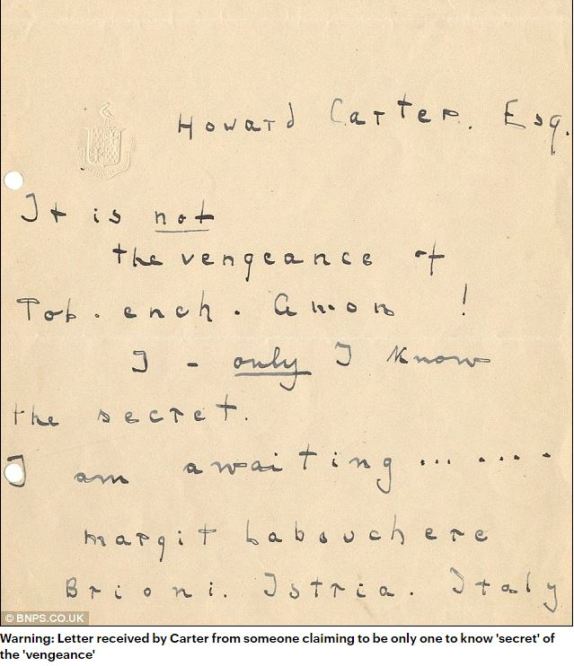 Howard Carter. Esq.
It is not
the vengeance of
Tob. ench. Amon !
I - only I know
the secret.
I am awaiting ... ....
Margit Labouchere
Brioni. Istria. Italy
© BNPS.CO.UK
Warning: Letter received by Carter from someone claiming to be only one to know 'secret' of
the 'vengeance'